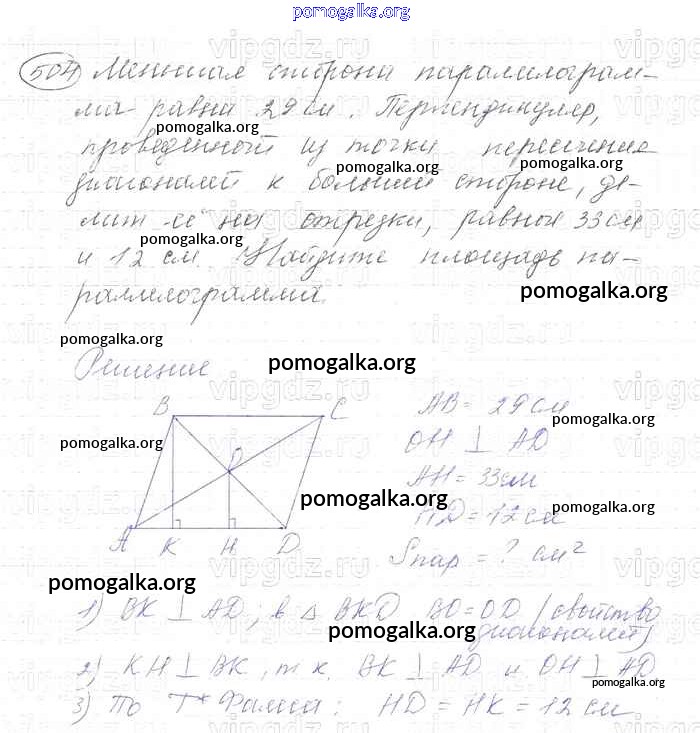 pomogalka.org
504) Меньшая сторона параллелограм-
ма равна 29 см. Перпендикуляр,
pomogalka.org
проведенной из точки пересечения
pomogalka.org pomogalka.org
диагоналей к большей стороне, де-
лит её на отрезки, равные 33 см
pomogalka.org
и 12 см. Найдите площадь па-
раллелограмма.
pomogalka.org
pomogalka.org
Решение
pomogalka.org
B C
AB = 29 см
pomogalka.org
pomogalka.org
OH ⊥ AD
O
AH = 33 см
pomogalka.org
HD = 12 см
pomogalka.org
A K H D
Sпар = ? см²
pomogalka.org
1) BK ⊥ AD; в △ BKD BO = OD (свойство
pomogalka.org
диагоналей)
2) KH ⊥ BK, т.к. BK ⊥ AD и OH ⊥ AD
pomogalka.org
3) По Т* Фалеса: HD = HK = 12 см
vipgdz.ru